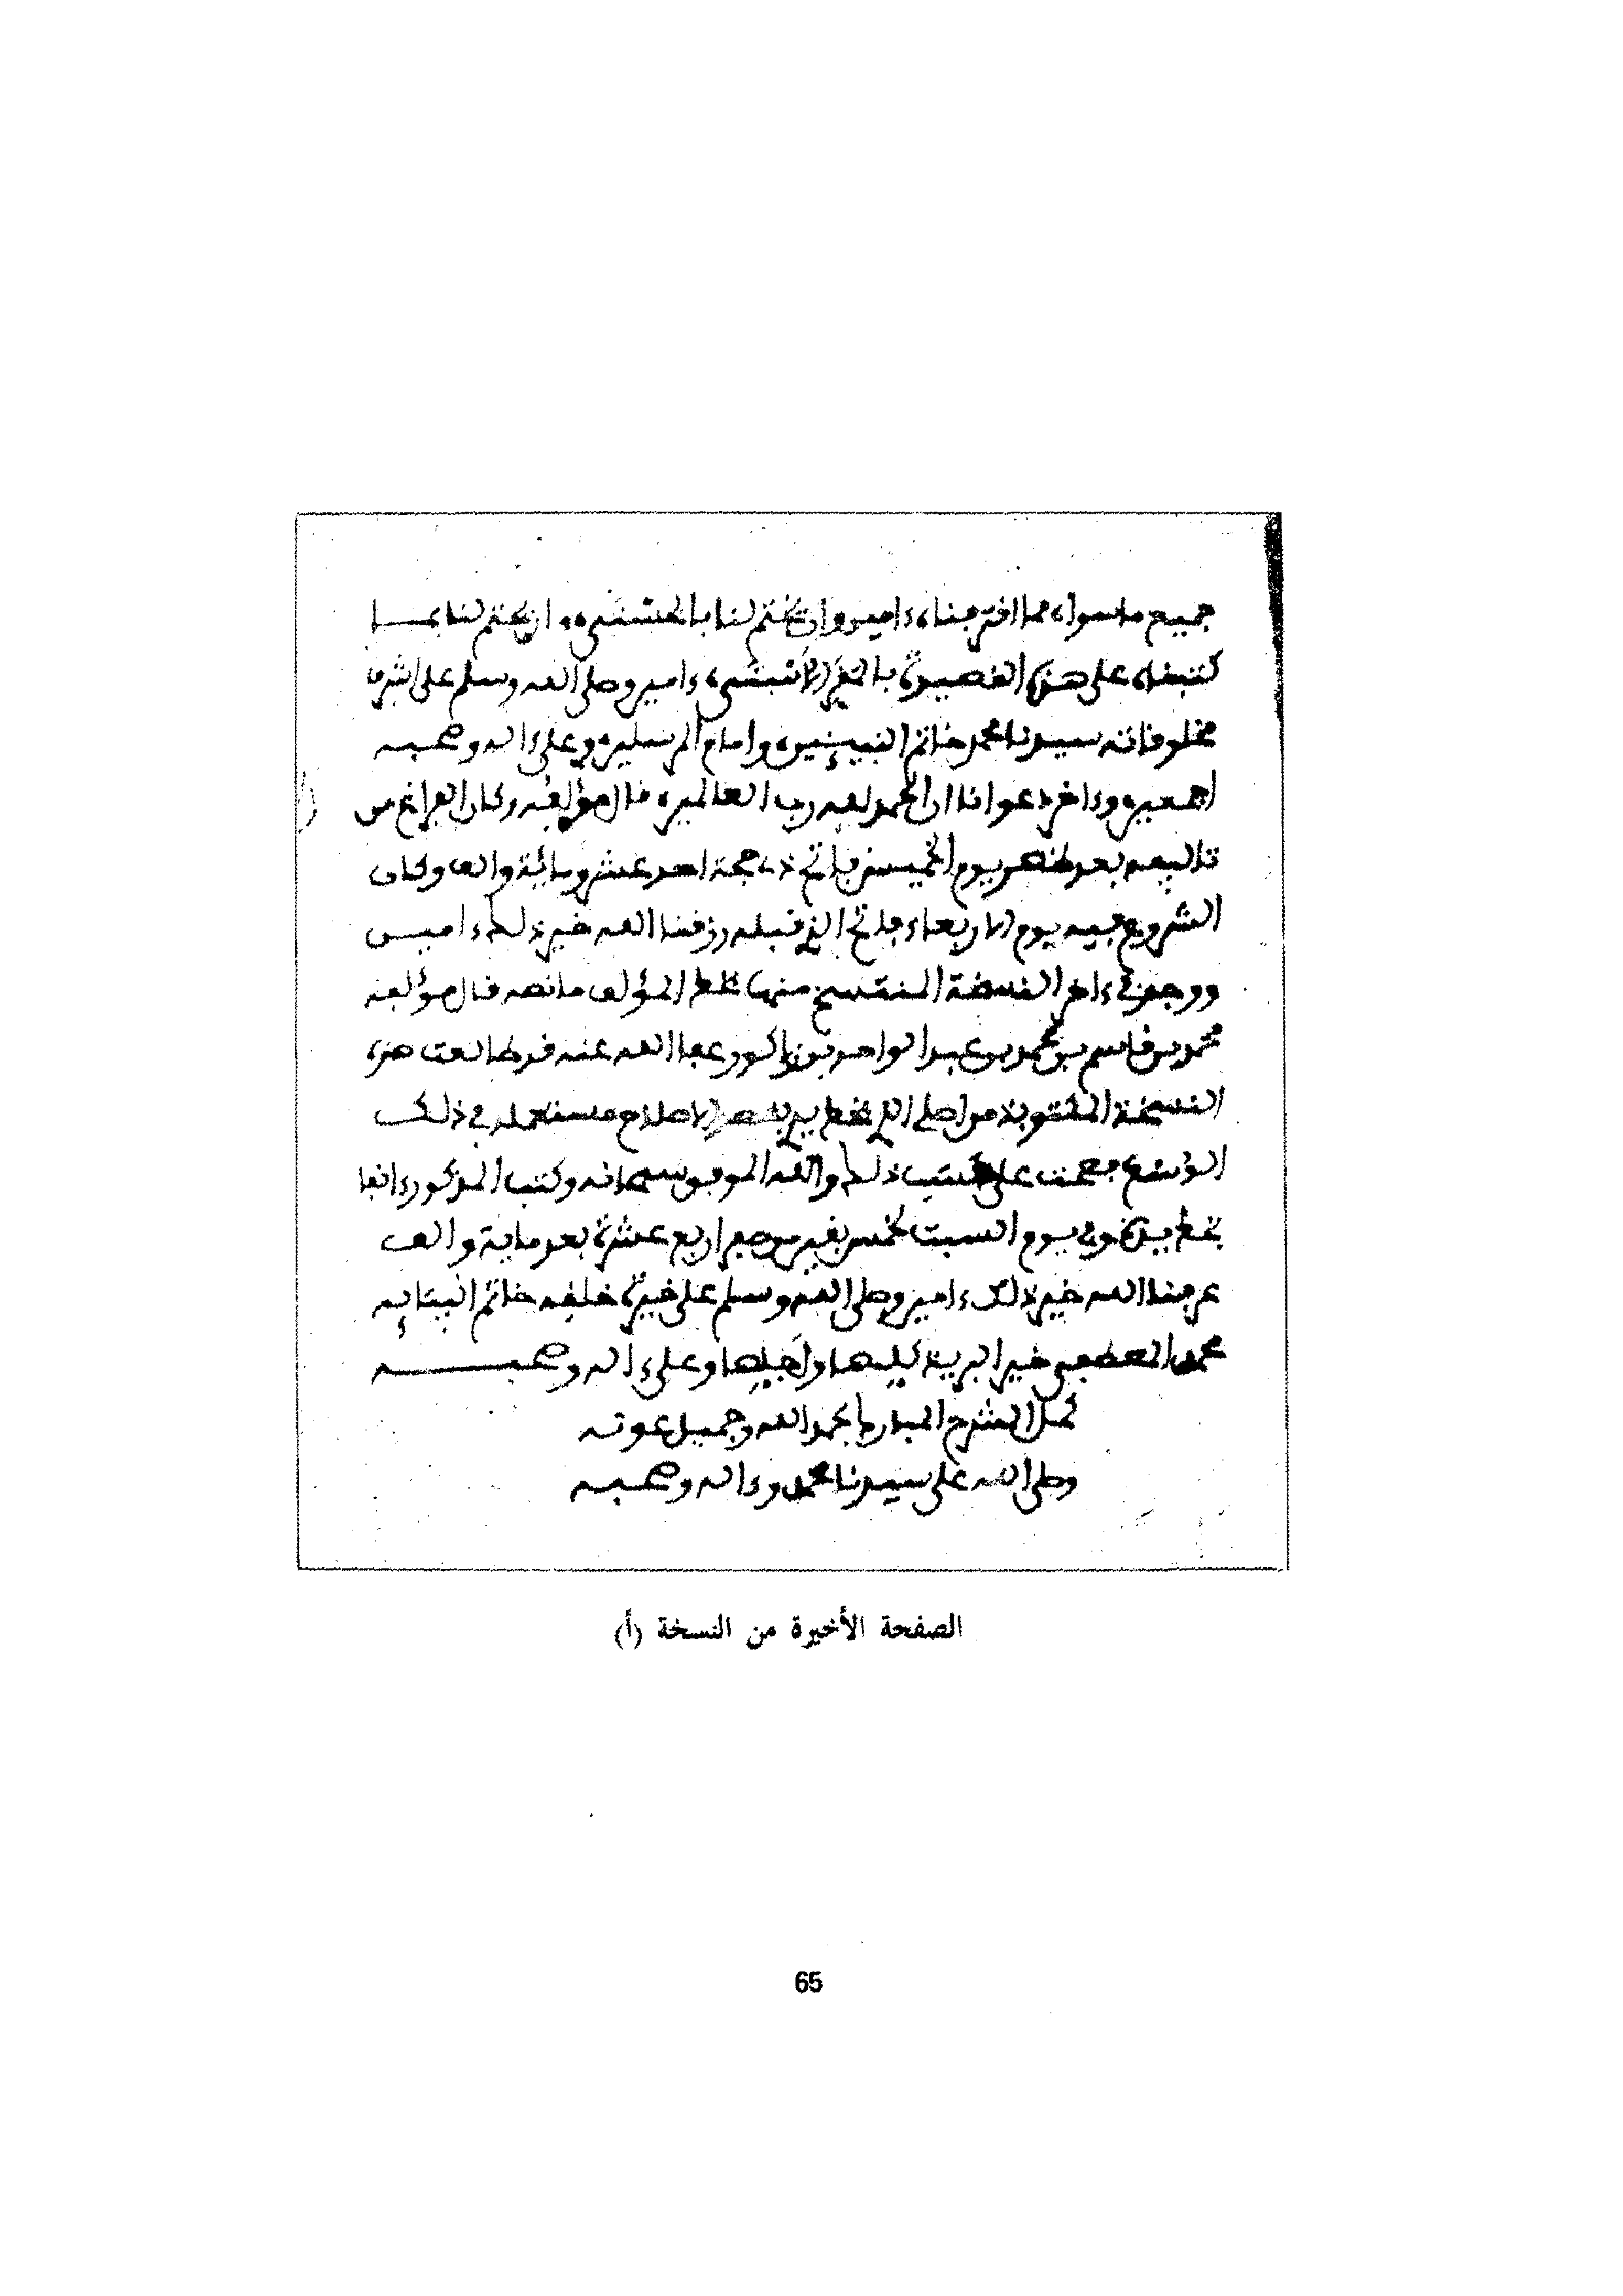 جميع ما سواه مما اقترحناه ءامين وان يختم لنا بالحسنى وان يختم لنا بما
كتبناه على هذه القصيدة بالمقر الأسنى ءامين وصلى الله وسلم على اشرف
مخلوقاته سيدنا محمد خاتم النبيئين وامام المرسلين وعلى ءاله وصحبه
اجمعين وءاخر دعوانا ان الحمد لله رب العالمين قال مؤلفه وكان الفراغ من
تاليفه بعد ظهر يوم الخميس فاتح ذي حجة احد عشر ومائة والف وكان
الشروع فيه يوم الاربعاء فاتح الذي قبله رزقنا الله خير ذلك ءاميـن
ووجد في ءاخر النسخة المنتسخ منها بخط المؤلف ما نصه قال مؤلفه
محمد بن قاسم بن محمد بن عبد الواحد بن زاكور عفا الله عنه قد طالعت هذه
النسخة المكتوبة من اصلي الذي بخط يدي بقصد الاصلاح مستعملا في ذلك
الوسع فصحت على حسب ذلك والله الموفق سبحانه وكتب المذكور ءانفا
بخط يده في يوم السبت لخمس بقين من صفر اربع عشرة بعد ماية والف
عرفنا الله خير ذلك ءامين وصلى الله وسلم على خيرة خلقه خاتم انبيائه
محمد المصطفى خير البرية كلها وعلى ءاله وصحبـــــه
كمل الشرح المبارك بحمد الله وجميل عونه
وصلى الله على سيدنا محمد وءاله وصحبه
الصفحة الأخيرة من النسخة (أ)
65